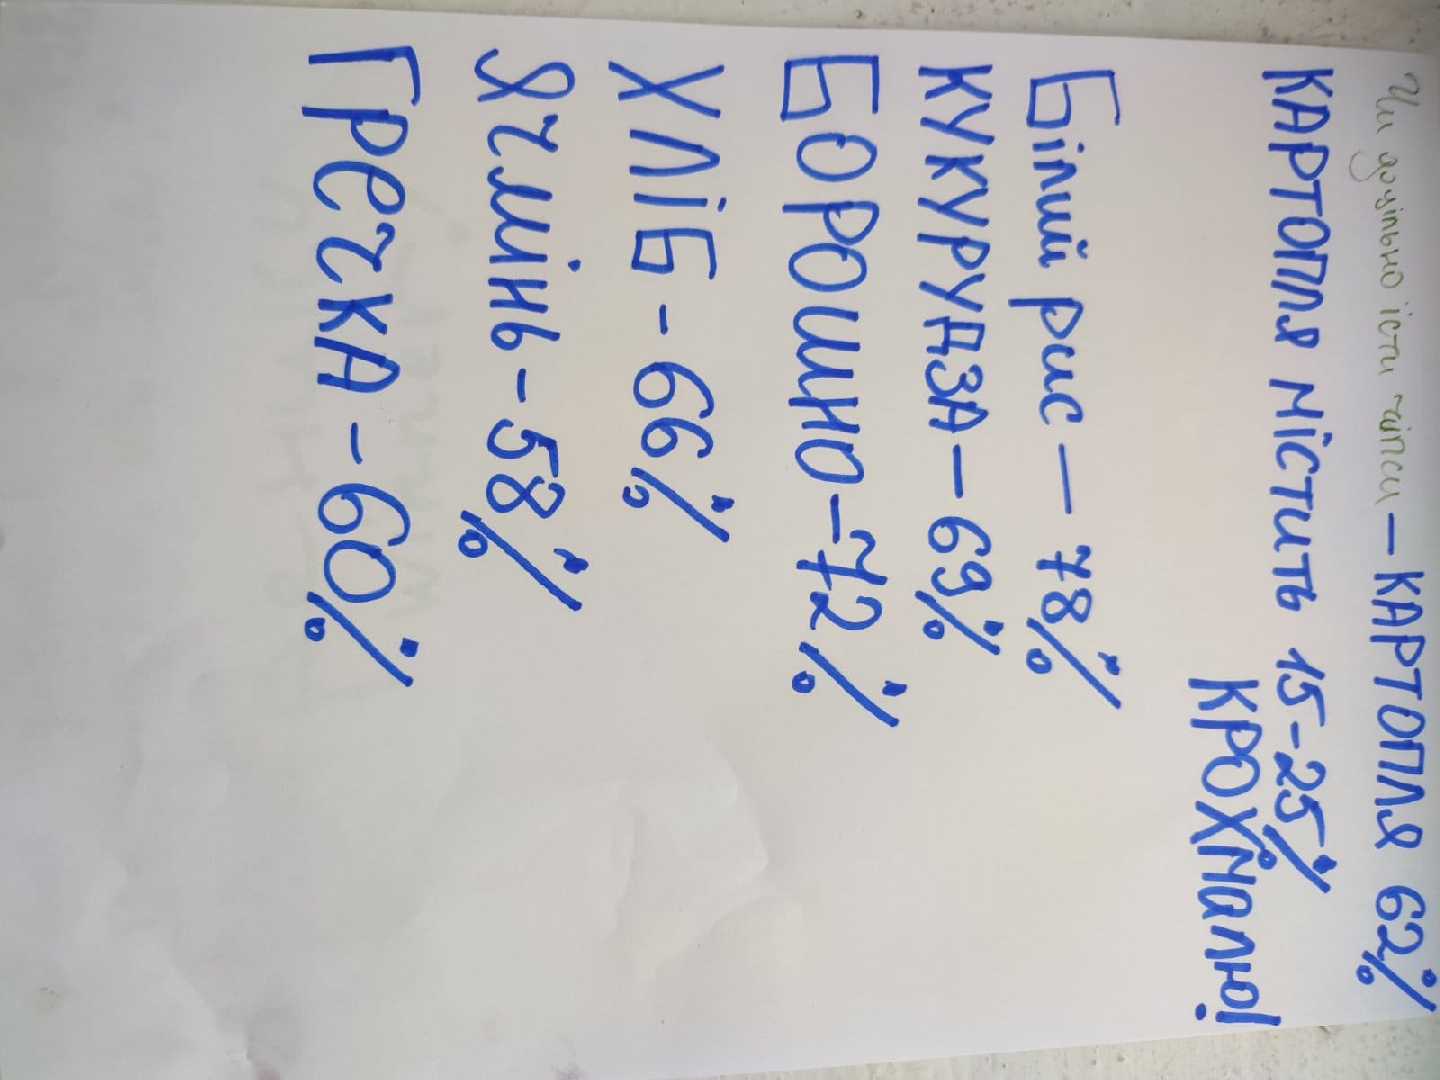 Чи доцільно їсти чіпси – КАРТОПЛЯ 62%
КАРТОПЛЯ МІСТИТЬ 15-25%
КРОХМАЛЮ!
Білий рис – 78%
КУКУРУДЗА – 69%
БОРОШНО – 72%
ХЛІБ - 66%
Ячмінь - 58%
ГРЕЧКА - 60%